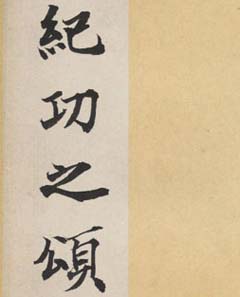 紀功之頌